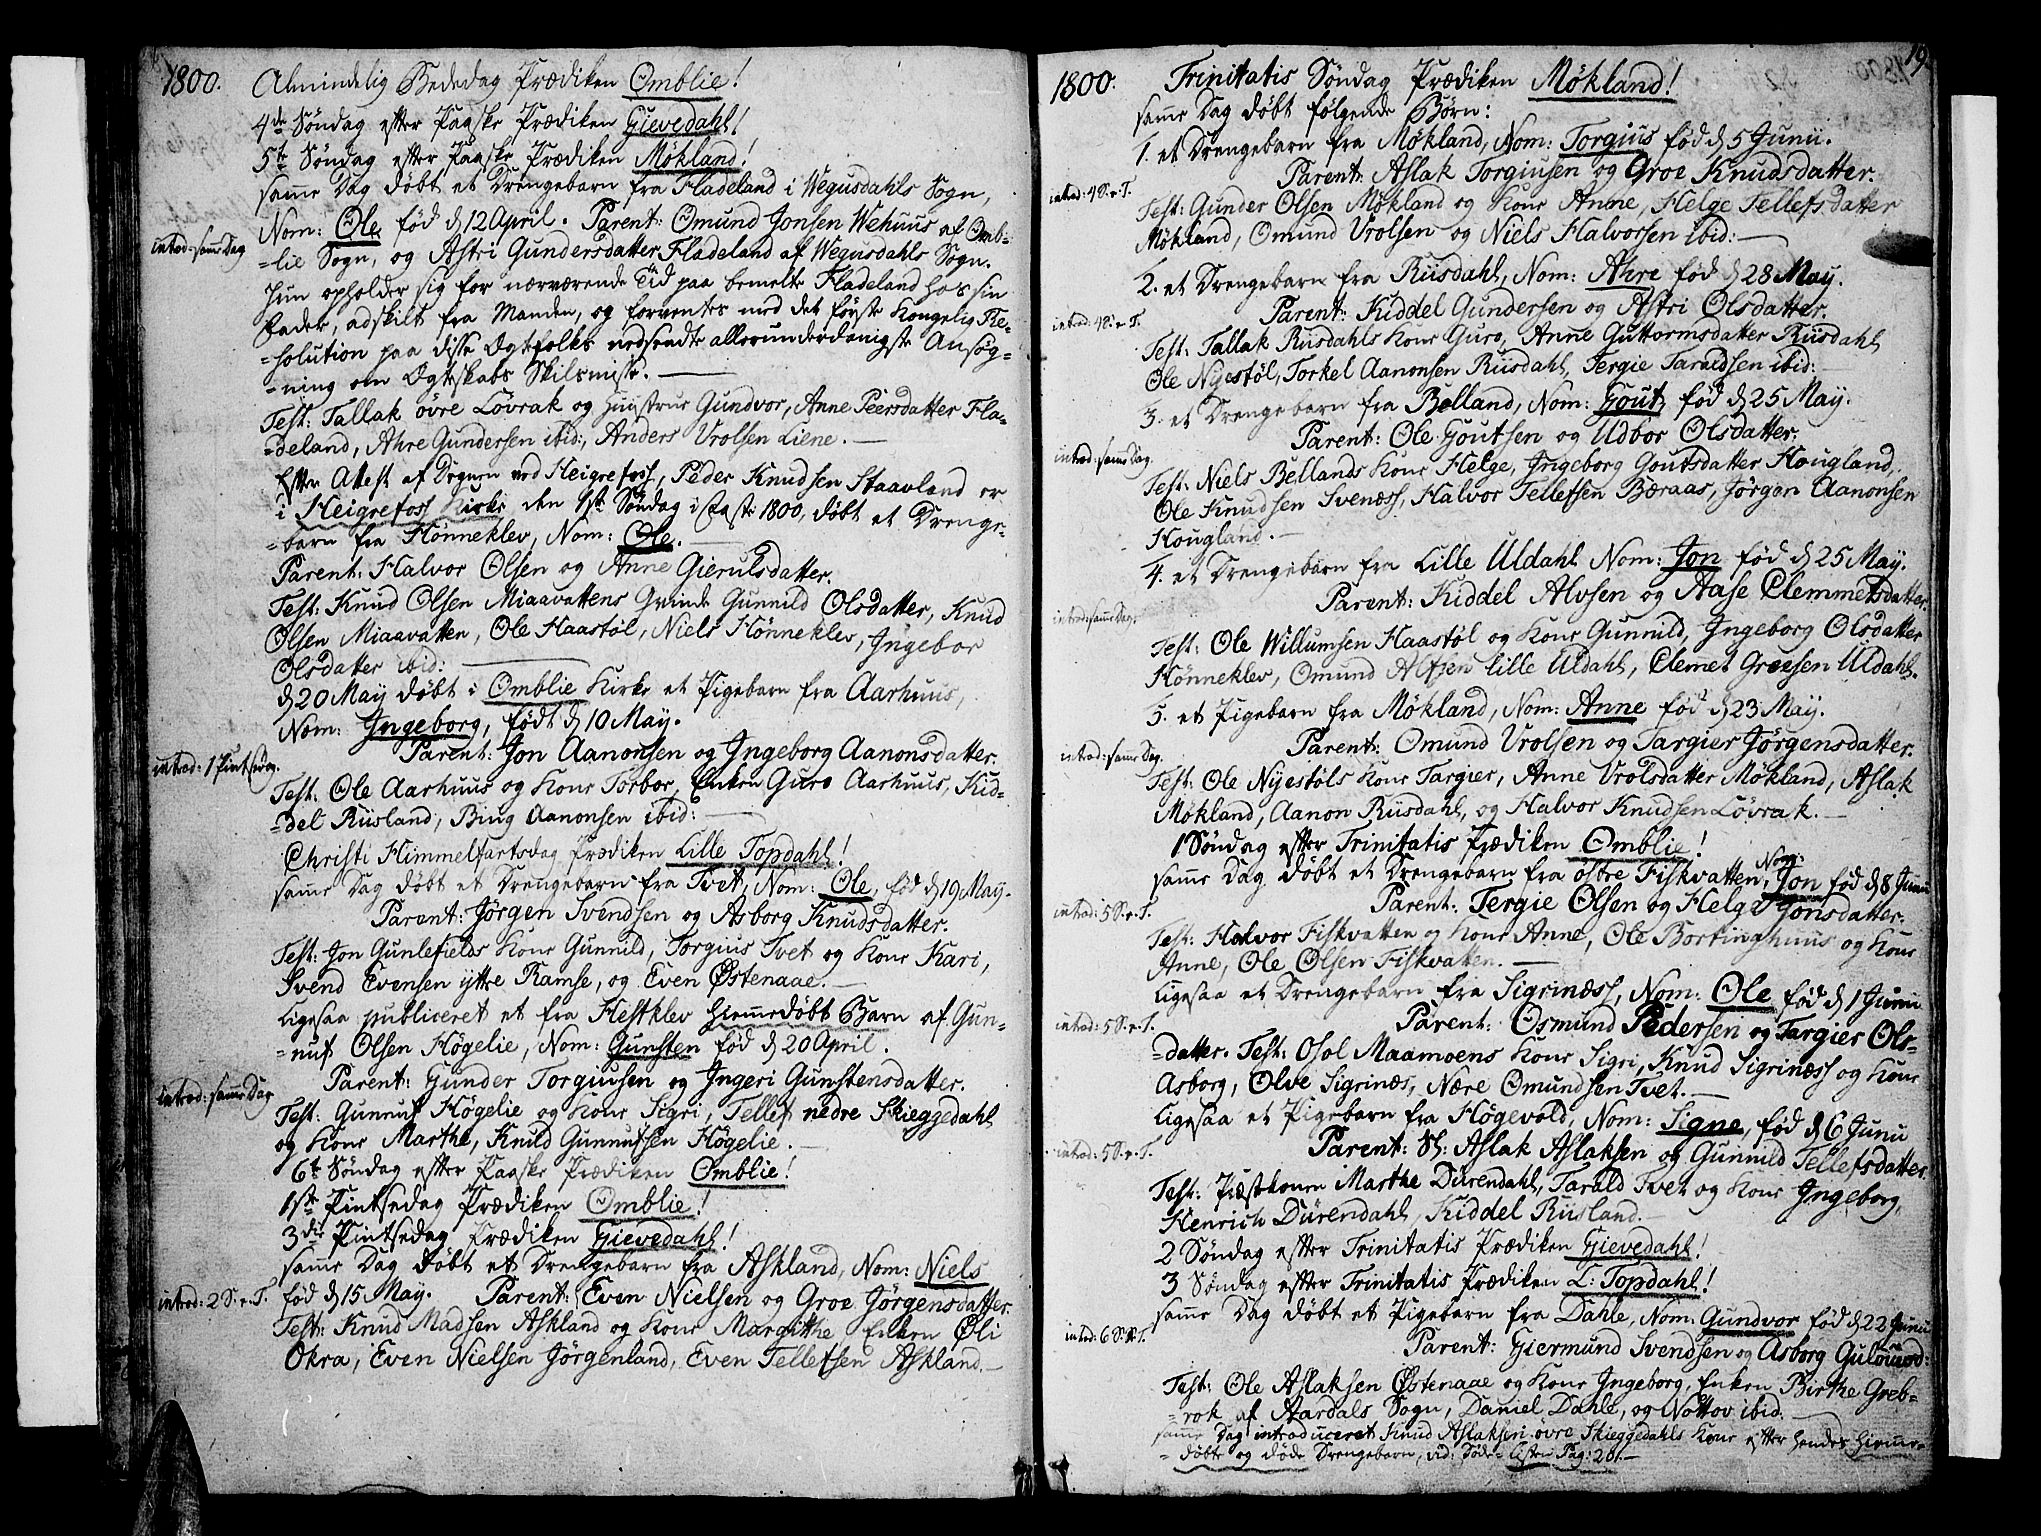 1800. Almindelig Bededag Prædiken Omblie!
4de Søndag efter Paaske Prædiken Gievedahl!
5te Søndag efter Paaske Prædiken Møkland!
samme Dag døbt et Drengebarn fra Fladeland i Wegusdahls Sogn,
Nom: Ole, fød d 12 April. Parent: Omund Jonsen Wehuus af Omb-
introd: samme Dag
=lie Sogn, og Astri Gundersdatter Fladeland af Wegusdahls Sogn.
Hun opholder sig for nærværende Tiid paa bemelte Fladeland hos sin
Fader, adskilt fra Manden, og forventes med det første Kongelig Re-
=solution paa disse Ægtefolks nedsendte allerunderdanigste Ansøg-
=ning om Ægteskabs Skilsmisse.
Test: Tallak øvre Løvrak og Huustrue Gundvor, Anne Peersdatter Fla-
=deland, Ahre Gundersen ibid:, Anders Vrolsen Liene.
Efter Attest af Degnen ved Heigrefoss, Peder Knudsen Staavland er
i Heigrefoss Kirke den 1ste Søndag i Faste 1800, døbt et Drenge-
=barn fra Hønneklev, Nom: Ole.
Parent: Halvor Olsen og Anne Gierulsdatter.
Test: Knud Olsen Miaavattens Qvinde Gunnild Olsdatter, Knud
Olsen Miaavatten, Ole Haastøl, Niels Hønneklev, Ingebor
Olsdatter ibid:
d 20 May døbt i Omblie Kirke et Pigebarn fra Aarhuus,
Nom: Ingeborg, født d 10 May.
Parent: Jon Aanonsen og Ingeborg Aanonsdatter.
introd: 1 Pintsedag.
Test: Ole Aarhuus og Kone Torbor, Enken Guro Aarhuus, Kid-
=del Riisland, Bing Aanonsen ibid:
Christi Himmelfartsdag Prædiken Lille Topdahl!
samme Dag døbt et Drengebarn fra Tvet, Nom: Ole, fød d 19 May.
Parent: Jørgen Svendsen og Asborg Knudsdatter.
Test: Jon Gunlefields Kone Gunnild, Torgius Tvet og Kone Kari,
Svend Evensen yttre Ramse, og Even Østenaae.
Ligesaa publiceret et fra Hestklev hiemmedøbt Barn af Gun-
=nuf Olsen Høgelie, Nom: Gunsten fød d 20 April.
Parent: Gunder Torgiusen og Ingeri Gunstensdatter.
introd: samme Dag
Test: Gunnuf Høgelie og Kone Sigri, Tellef nedre Skieggedahl
og Kone Marthe, Knud Gunnufsen Høgelie.
6te Søndag efter Paaske Prædiken Omblie!
1ste Pintsedag Prædiken Omblie!
3die Pintsedag Prædiken Gievedahl!
samme Dag døbt et Drengebarn fra Askland, Nom: Niels
introd: 2 S. e. T. fød d 15 May. Parent: Even Nielsen og Groe Jørgensdatter.
Test: Knud Madsen Askland og Kone Margithe, Enken Øli
Okra, Even Nielsen Jørgenland, Even Tellefsen Askland.
19
1800. Trinitatis Søndag Prædiken Møkland!
samme Dag døbt følgende Børn:
1. et Drengebarn fra Møkland, Nom: Torgius fød d 5 Junii.
Parent: Aslak Torgiusen og Groe Knudsdatter.
introd: 4 S. e. T.
Test: Gunder Olsen Møkland og Kone Anne, Helge Tellefsdatter
Møkland, Omund Vrolsen og Niels Halvorsen ibid:
2. et Drengebarn fra Riisdahl, Nom: Ahre fød d 28 May.
Parent: Kiddel Gundersen og Astri Olsdatter.
introd: 4 S. e T.
Test: Tallak Riisdahls Kone Guro, Anne Guttormsdatter Riisdahl
Ole Nyestøl, Torkel Aanonsen Riisdahl, Tergie Taraldsen ibid:
3. et Drengebarn fra Belland, Nom: Gout, fød d 25 May.
Parent: Ole Goutsen og Udbor Olsdatter.
introd: samme Dag.
Test: Niels Bellands Kone Helge, Ingeborg Goutsdatter Hougland,
Ole Knudsen Svenæss, Halvor Tellefsen Bæraas, Jørgen Aanonsen
Hougland.
4. et Drengebarn fra Lille Uldahl Nom: Jon fød d 25 May.
Parent: Kiddel Alvsen og Aase Clemmetsdatter.
introd: samme Dag.
Test: Ole Willumsen Haastøl og Kone Gunnild, Ingeborg Olsdatter
Hønneklev, Omund Alfsen Lille Uldahl, Clemet Grevsen Uldahl.
5. et Pigebarn fra Møkland, Nom: Anne fød d 23 May.
Parent: Omund Vrolsen og Targier Jørgensdatter.
introd: samme Dag.
Test: Ole Nyestøls Kone Targier, Anne Vrolsdatter Møkland, Aslak
Møkland, Aanon Riisdahl, og Halvor Knudsen Løvrak.
1 Søndag efter Trinitatis Prædiken Omblie!
samme Dag døbt et Drengebarn fra østre Fiskvatten, Nom: Jon fød d 8 Junii
Parent: Tergie Olsen og Helge Jonsdatter.
introd: 5 S. e. T.
Test: Halvor Fiskvatten og Kone Anne, Ole Borkinghuus og Kone
Anne, Ole Olsen Fiskvatten.
Ligesaa et Drengebarn fra Sigrinæss, Nom: Ole fød d 1 Junii
introd: 5 S. e. T.
Parent: Osmund Pedersen og Targier Ols-
=datter. Test: Osol Maamoens Kone Sigri, Knud Sigrinæss og Kone
Asborg, Olve Sigrinæs, Nære Omundsen Tvet.
Ligesaa et Pigebarn fra Høgevold, Nom: Signe, fød d 6 Junii
introd: 5 S. e. T.
Parent: Sl: Aslak Aslaksen og Gunnild Tellefsdatter.
Test: Præstkonen Marthe Dürendahl, Tarald Tvet og Kone Ingeborg,
Henrich Dürendahl, Kiddel Riisland.
2 Søndag efter Trinitatis Prædiken Gievedahl!
3 Søndag efter Trinitatis Prædiken L: Topdahl!
samme Dag døbt et Pigebarn fra Dahle, Nom: Gundvor fød d 22 Junii
introd: 6 S. e. T.
Parent: Giermund Svendsen og Asborg
Test: Ole Aslaksen Østenaae og Kone Ingeborg, Enken Birthe Greb-
=rok af Aardals Sogn, Daniel Dahle, og Nottov ibid:
samme Dag introduceret Knud Aslaksen øvre Skieggedahls Kone efter hendes hiemme-
=døbte og døde Drengebarn, vid: Døde-Listen Pag: 201.